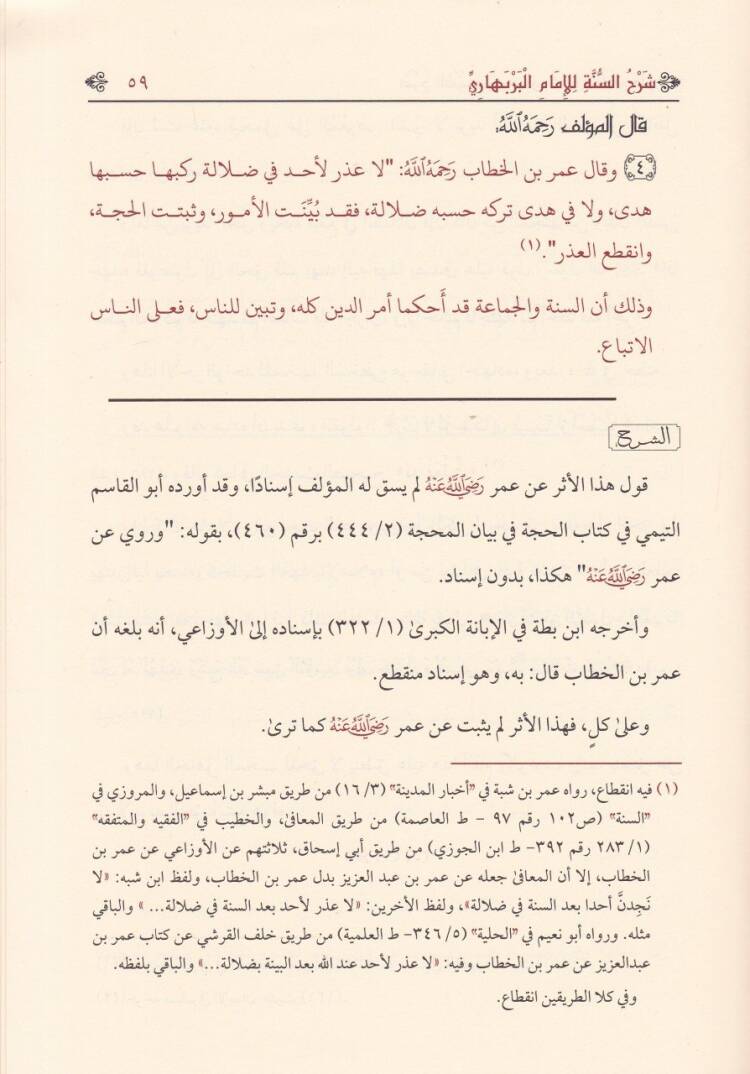 شَرْحُ السُّنَّةِ لِلإِمَامِ الْبَرْبَهَارِيِّ ٥٩
قال المؤلف رَحِمَهُ ٱللَّهُ:
٤ وقال عمر بن الخطاب رَحِمَهُ ٱللَّهُ: "لا عذر لأحد في ضلالة ركبها حسبها
هدى، ولا في هدى تركه حسبه ضلالة، فقد بُيِّنَت الأمور، وثبتت الحجة،
وانقطع العذر".(١)
وذلك أن السنة والجماعة قد أَحكما أمر الدين كله، وتبين للناس، فعلى الناس
الاتباع.
الشرح
قول هذا الأثر عن عمر رَضِيَ ٱللَّهُ عَنْهُ لم يسق له المؤلف إسنادًا، وقد أورده أبو القاسم
التيمي في كتاب الحجة في بيان المحجة (٢/ ٤٤٤) برقم (٤٦٠)، بقوله: "وروي عن
عمر رَضِيَ ٱللَّهُ عَنْهُ" هكذا، بدون إسناد.
وأخرجه ابن بطة في الإبانة الكبرىٰ (١/ ٣٢٢) بإسناده إلىٰ الأوزاعي، أنه بلغه أن
عمر بن الخطاب قال: به، وهو إسناد منقطع.
وعلىٰ كلٍ، فهذا الأثر لم يثبت عن عمر رَضِيَ ٱللَّهُ عَنْهُ كما ترىٰ.
(١) فيه انقطاع، رواه عمر بن شبة في "أخبار المدينة" (٣/ ١٦) من طريق مبشر بن إسماعيل، والمروزي في
"السنة" (ص١٠٢ رقم ٩٧ - ط العاصمة) من طريق المعافىٰ، والخطيب في "الفقيه والمتفقه"
(١/ ٢٨٣ رقم ٣٩٢- ط ابن الجوزي) من طريق أبي إسحاق، ثلاثتهم عن الأوزاعي عن عمر بن
الخطاب، إلا أن المعافىٰ جعله عن عمر بن عبد العزيز بدل عمر بن الخطاب، ولفظ ابن شبه: «لا
نَجِدنَّ أحدا بعد السنة في ضلالة»، ولفظ الأخرين: «لا عذر لأحد بعد السنة في ضلالة... » والباقي
مثله. ورواه أبو نعيم في "الحلية" (٥/ ٣٤٦- ط العلمية) من طريق خلف القرشي عن كتاب عمر بن
عبدالعزيز عن عمر بن الخطاب وفيه: «لا عذر لأحد عند الله بعد البينة بضلالة...» والباقي بلفظه.
وفي كلا الطريقين انقطاع.